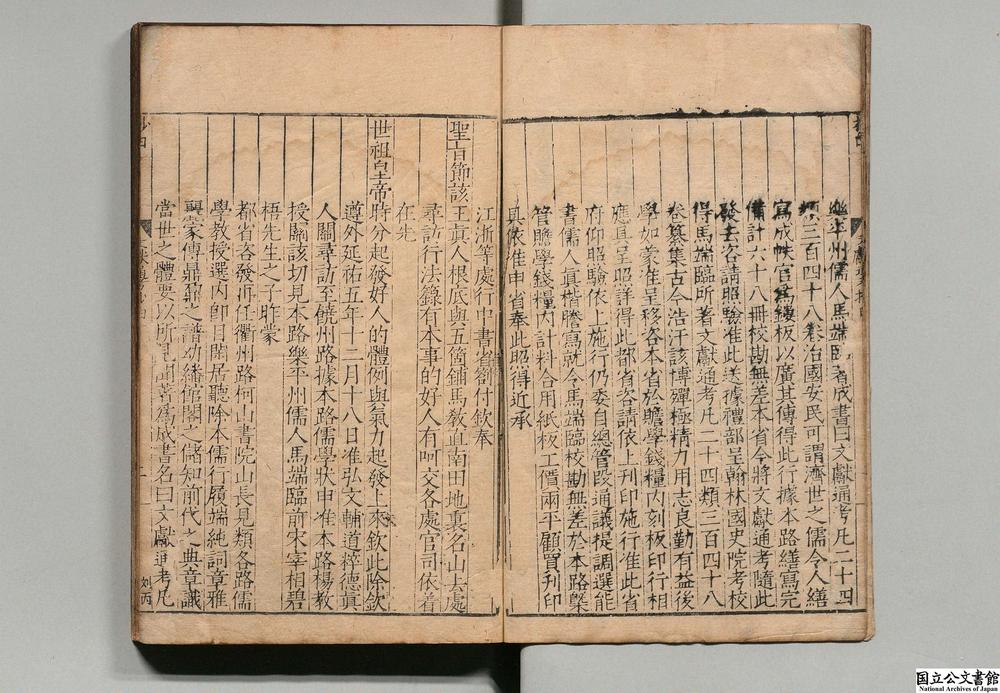 樂平州儒人馬端臨著成書曰文獻通考凡二十四
類三百四十八卷治國安民可謂濟世之儒令人繕
寫成帙官為鏤板以廣其傳得此行據本路繕寫完
備計六十八冊校勘無差本省今將文獻通考隨此
發去咨請照驗准此送據禮部呈翰林國史院考校
得馬端臨所著文獻通考凡二十四類三百四十八
卷纂集古今浩汗該博殫極精力用志良勤有益後
學如蒙准呈移各本省於贍學錢糧內刻板印行相
應具呈照詳得此都省咨請依上刊印施行准此省
府仰照驗依上施行仍委自總管段通議提調選能
書儒人真楷謄寫就令馬端臨校勘無差於本路槩
管贍學錢糧內計料合用紙板工價兩平顧買刊印
具依准申省奉此照得近承
江浙等處行中書省劄付欽奉
聖旨節該王真人根底與五箇鋪馬教直南田地裏名山去處
尋訪行法籙有本事的好人有呵交各處官司依着
在先
世祖皇帝時分起發好人的體例與氣力起發上來欽此除欽
遵外延祐五年十二月十八日准弘文輔道粹德真
人關尋訪至饒州路據本路儒學狀申准本路楊教
授關該切見本路樂平州儒人馬端臨前宋宰相碧
梧先生之子昨蒙
都省咨發汧任衢州路柯山書院山長見類各路儒
學教授選內即目閑居聽除本儒行履端純詞章雅
麗蒙傳鼎鼐之譜幼繙館閣之儲知前代之典章識
當世之體要以所見聞著為成書名曰文獻通考凡
刘丙
国立公文書館
National Archives of Japan